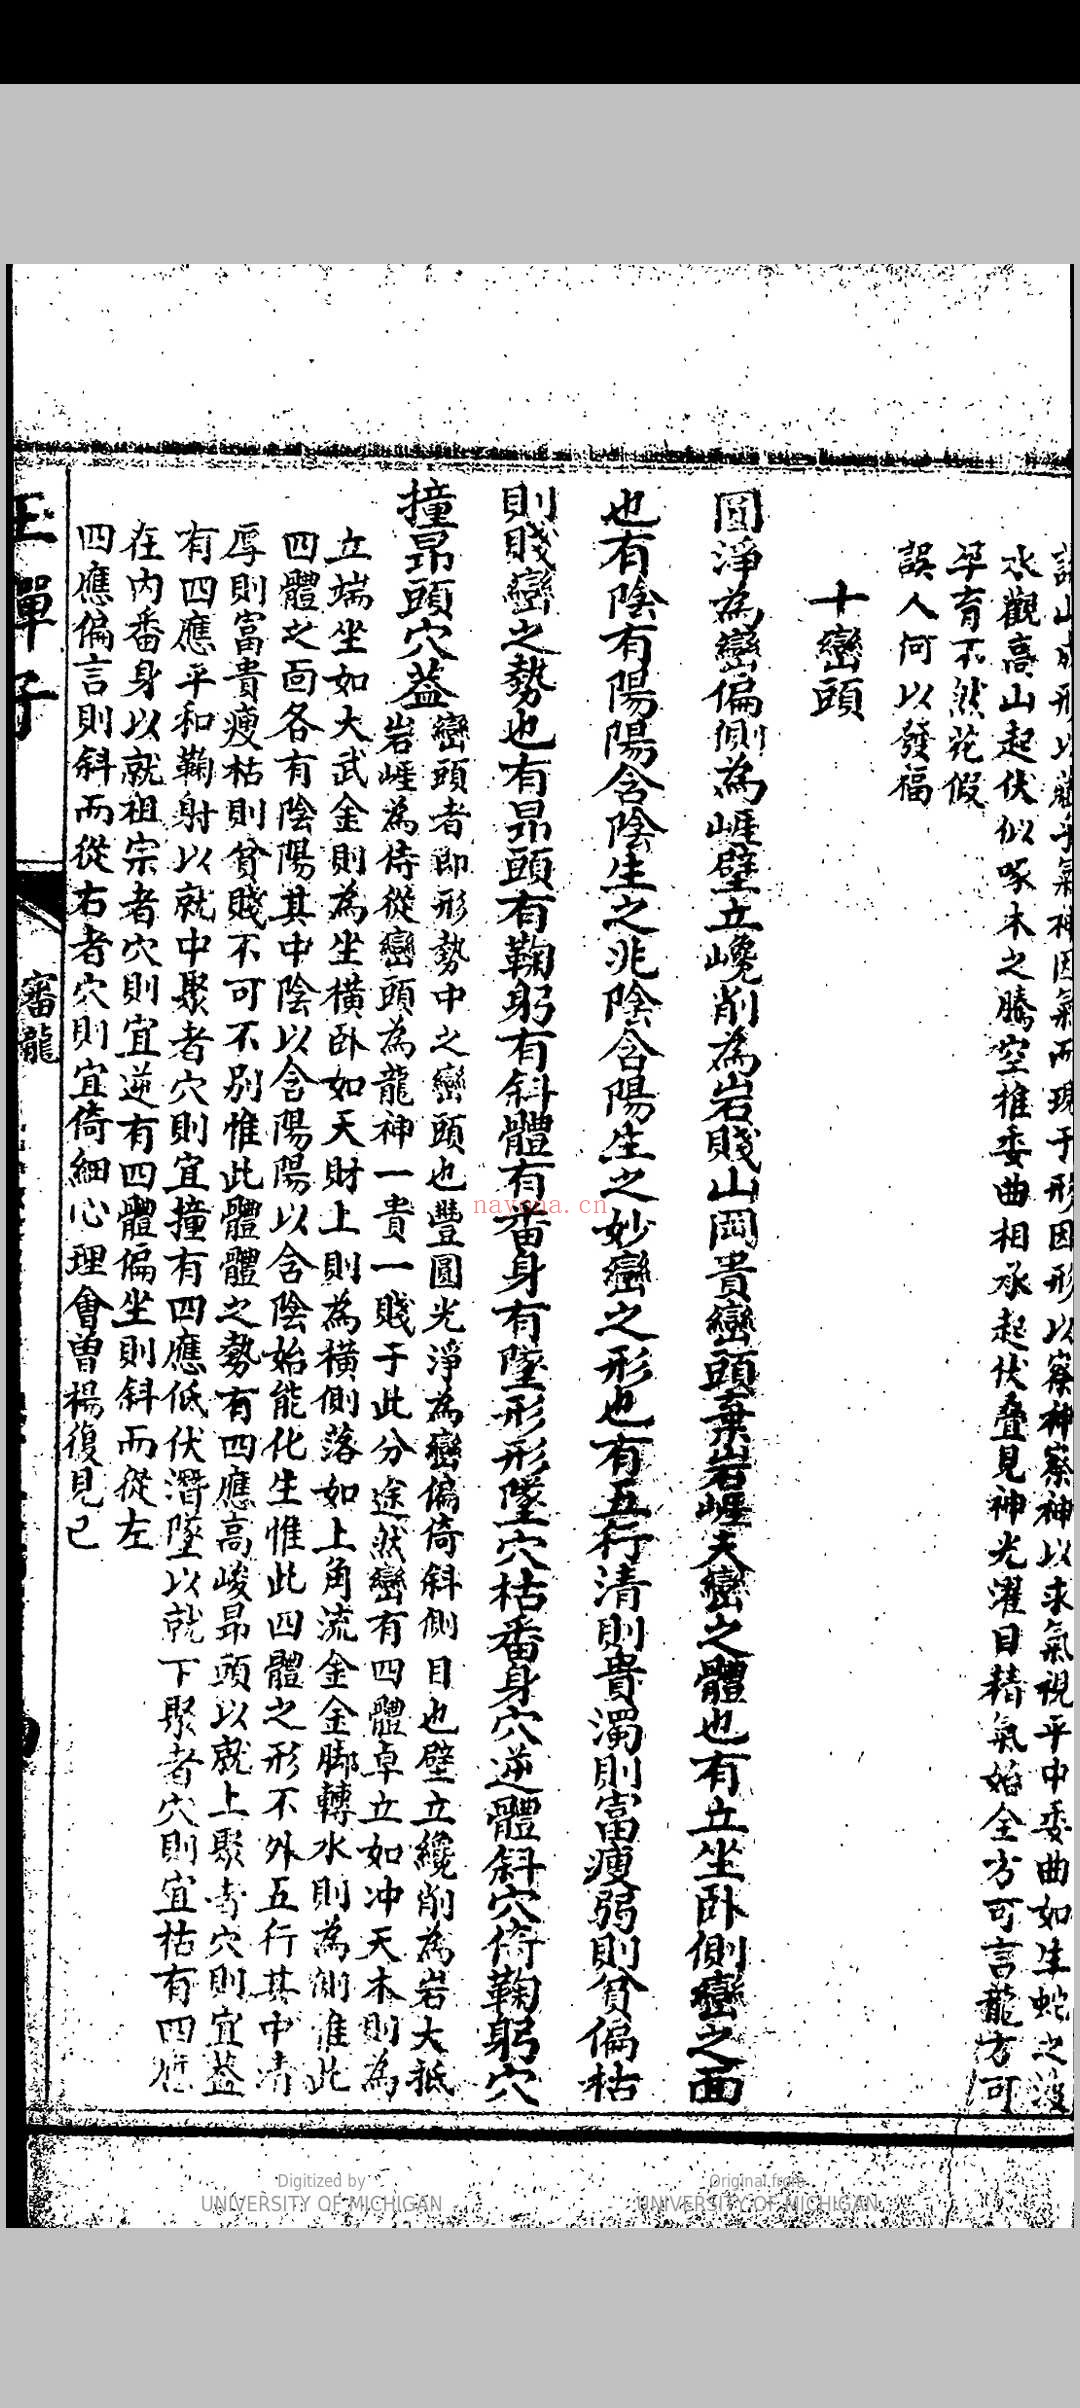 山成形以藏乎氣神因氣而現于形因形以察神察神以求氣視平中委曲如生蛇之渡
水觀高山起伏似啄木之騰空推委曲相承起伏叠見神光濯目精氣始全方可言龍方可
孕育不然花假
誤人何以發福
十巒頭
圓淨為巒偏側為崖壁立巉削為岩賤山岡貴巒頭棄岩崖夫巒之體也有立坐卧側巒之面
也有陰有陽陽含陰生之兆陰含陽生之妙巒之形也有五行清則貴濁則富瘦弱則貧偏枯
則賤巒之勢也有昂頭有鞠躬有斜體有番身有墜形形墜穴枯番身穴逆體斜穴倚鞠躬穴
撞昂頭穴葢
巒頭者即形勢中之巒頭也豐圓光淨為巒偏倚斜側目也壁立纔削為岩大抵
岩崖為侍從巒頭為龍神一貴一賤于此分途然巒有四體卓立如冲天木則為
立端坐如大武金則為坐橫卧如天財土則為橫側落如上角流金金脚轉水則為側惟此
四體之面各有陰陽其中陰以含陽陽以含陰始能化生惟此四體之形不外五行其中清
厚則富貴瘦枯則貧賤不可不別惟此體體之勢有四應高峻昂頭以就上聚者穴則宜葢
有四應平和鞠射以就中聚者穴則宜撞有四應低伏潛墜以就下聚者穴則宜枯有四
在内番身以就祖宗者穴則宜逆有四體偏坐則斜而從左
四應偏言則斜而從右者穴則宜倚細心理會曾楊復見已
玉彈子
審龍
nayona.cn
Digitized by
UNIVERSITY OF MICHIGAN
Original from
UNIVERSITY OF MICHIGAN